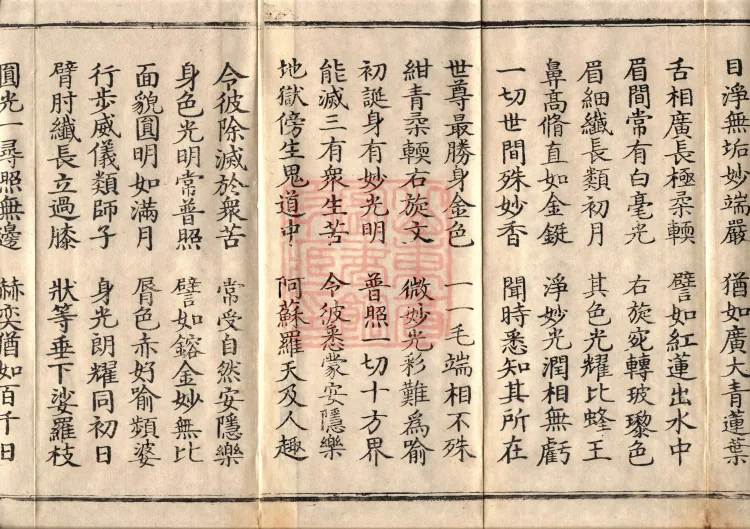 目淨無垢妙端嚴 猶如廣大青蓮葉
舌相廣長極柔輭 譬如紅蓮出水中
眉間常有白毫光 右旋宛轉玻瓈色
眉細纖長類初月 其色光耀比蜂王
鼻高脩直如金鋌 淨妙光潤相無虧
一切世間殊妙香 聞時悉知其所在
世尊最勝身金色 一一毛端相不殊
紺青柔輭右旋文 微妙光彩難為喻
初誕身有妙光明 普照一切十方界
能滅三有眾生苦 令彼悉蒙安隱樂
地獄傍生鬼道中 阿蘇羅天及人趣
令彼除滅於眾苦 常受自然安隱樂
身色光明常普照 譬如鎔金妙無比
面貌圓明如滿月 脣色赤好喻頻婆
行步威儀類師子 身光朗耀同初日
臂肘纖長立過膝 狀等垂下娑羅枝
圓光一尋照無邊 赫奕猶如百千日